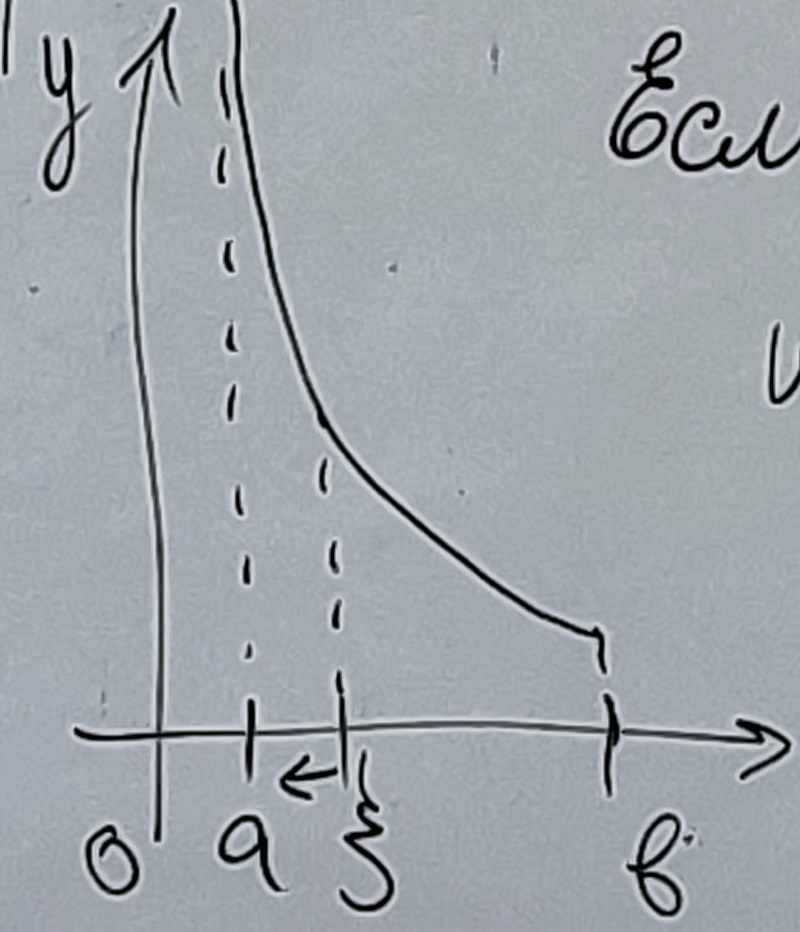 y
Если
0 a ξ в